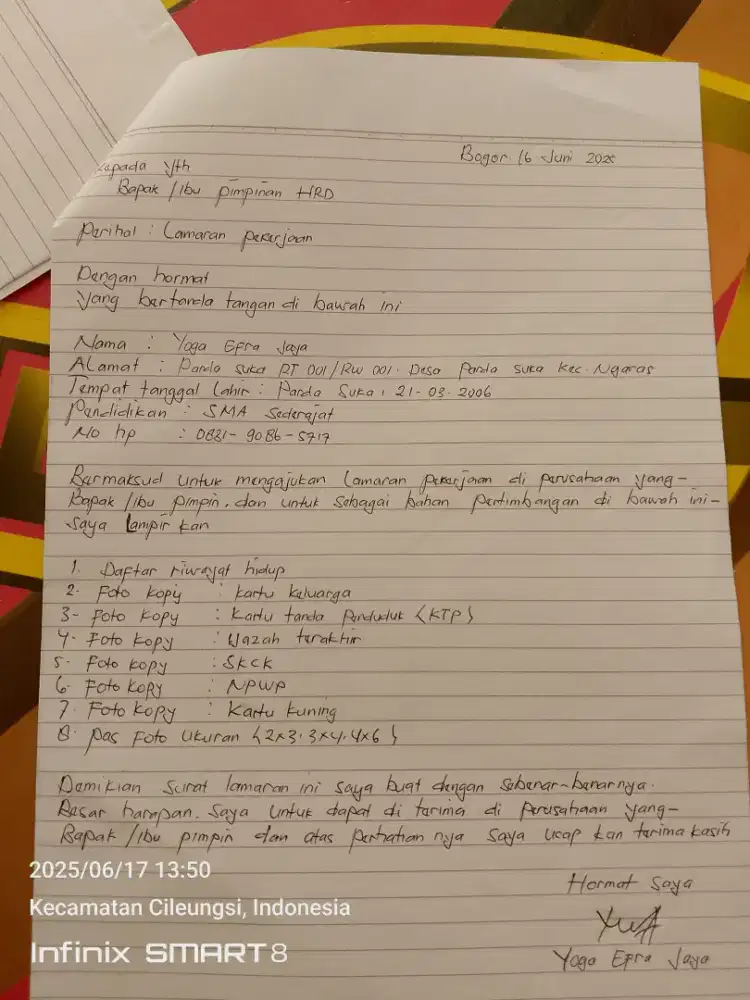 Bogor 16 Juni 2025
Kepada Yth
Bapak / ibu pimpinan HRD
Perihal : Lamaran pekerjaan
Dengan hormat
yang bertanda tangan di bawah ini
Nama : Yoga Efra Jaya
ALamat : Panda suka RT 001 / RW 001. Desa panda suka kec. Ngaras
Tempat tanggal Lahir : Panda Suka, 21-03-2006
Pendidikan : SMA Sederajat
No hp : 0831-9086-5717
Bermaksud untuk mengajukan lamaran pekerjaan di perusahaan yang-
Bapak / ibu pimpin. dan untuk sebagai bahan pertimbangan di bawah ini-
saya Lampir kan
1. Daftar riwayat hidup
2. Foto kopy : kartu keluarga
3- Foto kopy : Kartu tanda Penduduk (KTP)
4- Foto kopy : Ijazah terakhir
5. Foto kopy : SKCK
6. Foto kopy : NPWP
7. Foto kopy : Kartu kuning
8. pas Foto ukuran (2x3. 3x4. 4x6)
Demikian surat lamaran ini saya buat dengan sebenar-benarnya.
Besar harapan. Saya untuk dapat di terima di perusahaan yang-
Bapak / ibu pimpin dan atas perhatian nya saya ucap kan terima kasih
Hormat Saya
Yoga Efra Jaya
2025/06/17 13:50
Kecamatan Cileungsi, Indonesia
Infinix SMART 8